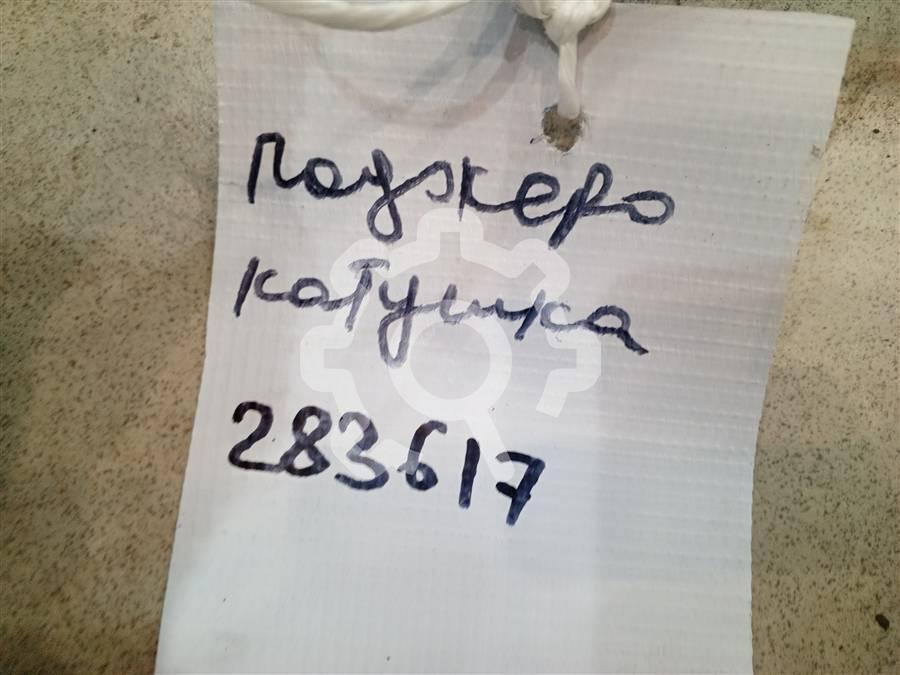 Паджеро
катушка
283617